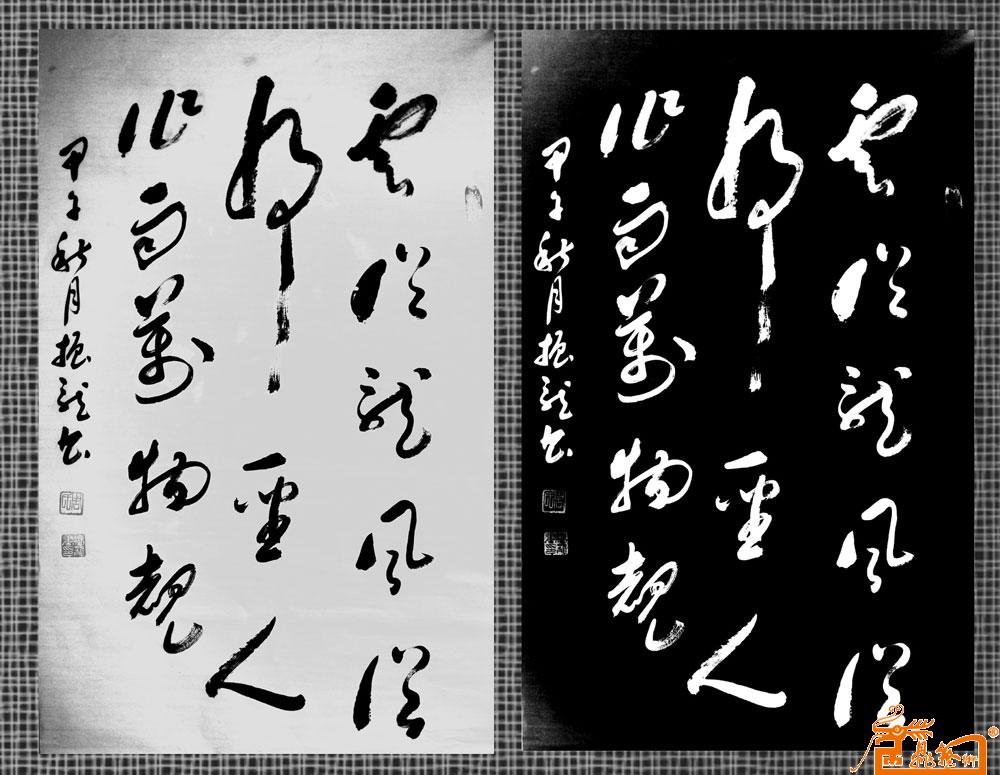 雲從龍風從
虎聖人
作而萬物覩
甲午秋月振龍書
雲從龍風從
虎聖人
作而萬物覩
甲午秋月振龍書